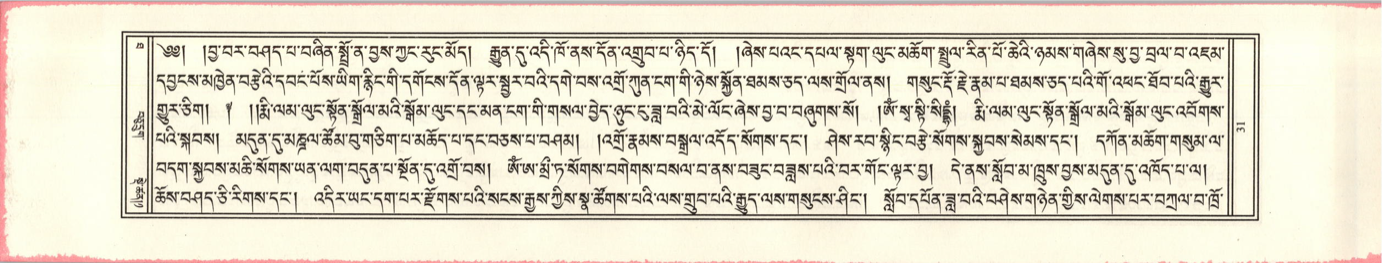 ༄༅། །བྱ་བར་བཤད་པ་བཞིན་སྤྲོ་ན་བྱས་ཀྱང་རུང་མོད། རྒྱུན་དུ་འདི་ཁོ་ནས་དོན་འགྲུབ་པ་ཉིད་དོ། །ཞེས་པའང་དཔལ་སྟག་ལུང་མཆོག་སྤྲུལ་རིན་པོ་ཆེའི་ཉམས་གཞེས་སུ་བྱ་བྲལ་བ་འཇམ་
དབྱངས་མཁྱེན་བརྩེའི་དབང་པོས་ཡིག་རྙིང་གི་དགོངས་དོན་ལྟར་སྦྱར་བའི་དགེ་བས་འགྲོ་ཀུན་ངག་གི་ཉེས་སྐྱོན་ཐམས་ཅད་ལས་གྲོལ་ནས། གསུང་རྡོ་རྗེ་རྣམ་པ་ཐམས་ཅད་པའི་གོ་འཕང་ཐོབ་པའི་རྒྱུར་
གྱུར་ཅིག། ༈ །།རྨི་ལམ་ལུང་སྟོན་སྒྲོལ་མའི་སྒོམ་ལུང་དང་མན་ངག་གི་གསལ་བྱེད་ཉུང་ངུ་ཟླ་བའི་མེ་ལོང་ཞེས་བྱ་བ་བཞུགས་སོ། །ཨོཾ་སྭ་སྟི་སིདྡྷཾ། རྨི་ལམ་ལུང་སྟོན་སྒྲོལ་མའི་སྒོམ་ལུང་འབོགས་
པའི་སྐབས། མདུན་དུ་མཎྜལ་ཚོམ་བུ་གཅིག་པ་མཆོད་པ་དང་བཅས་པ་བཤམ། །འགྲོ་རྣམས་བསྒྲལ་འདོད་སོགས་དང་། ཤེས་རབ་སྙིང་བརྩེ་སོགས་སྐྱབས་སེམས་དང་། དཀོན་མཆོག་གསུམ་ལ་
བདག་སྐྱབས་མཆི་སོགས་ཡན་ལག་བདུན་པ་སྔོན་དུ་འགྲོ་བས། ཨོཾ་ཨ་མྲྀ་ཏ་སོགས་བགེགས་བསལ་བ་ནས་བཟུང་བཟླས་པའི་བར་གོང་ལྟར་བྱ། དེ་ནས་སློབ་མ་ཁྲུས་བྱས་མདུན་དུ་འཁོད་པ་ལ།
ཆོས་བཤད་ཅི་རིགས་དང་། འདིར་ཡང་དག་པར་རྫོགས་པའི་སངས་རྒྱས་ཀྱིས་སྣ་ཚོགས་པའི་ལས་གྲུབ་པའི་རྒྱུད་ལས་གསུངས་ཤིང་། སློབ་དཔོན་ཟླ་བའི་བཤེས་གཉེན་གྱིས་ལེགས་པར་བཀྲལ་བ་ཁྲོ་
31